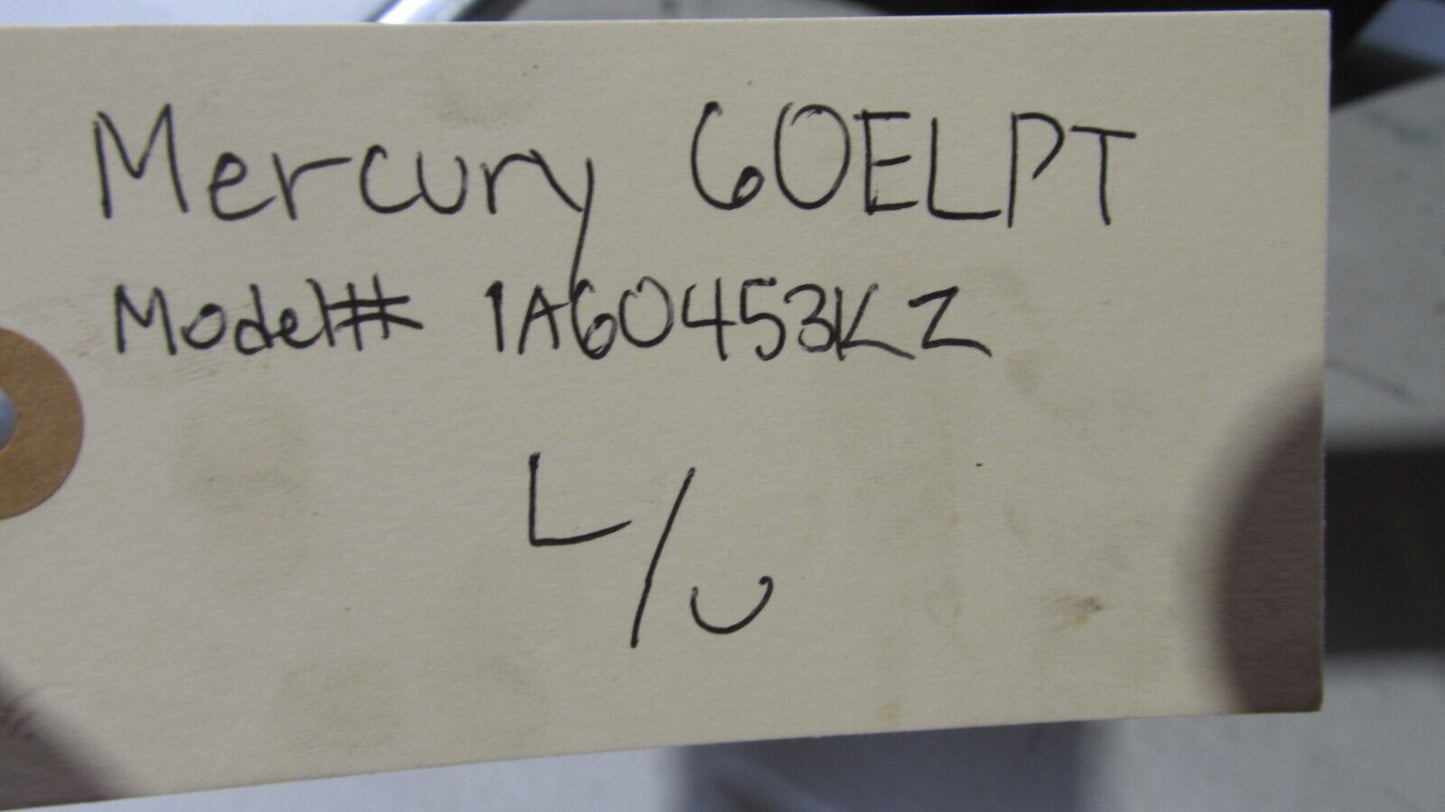 Mercury 60ELPT
Model# 1A60453KZ
L/U